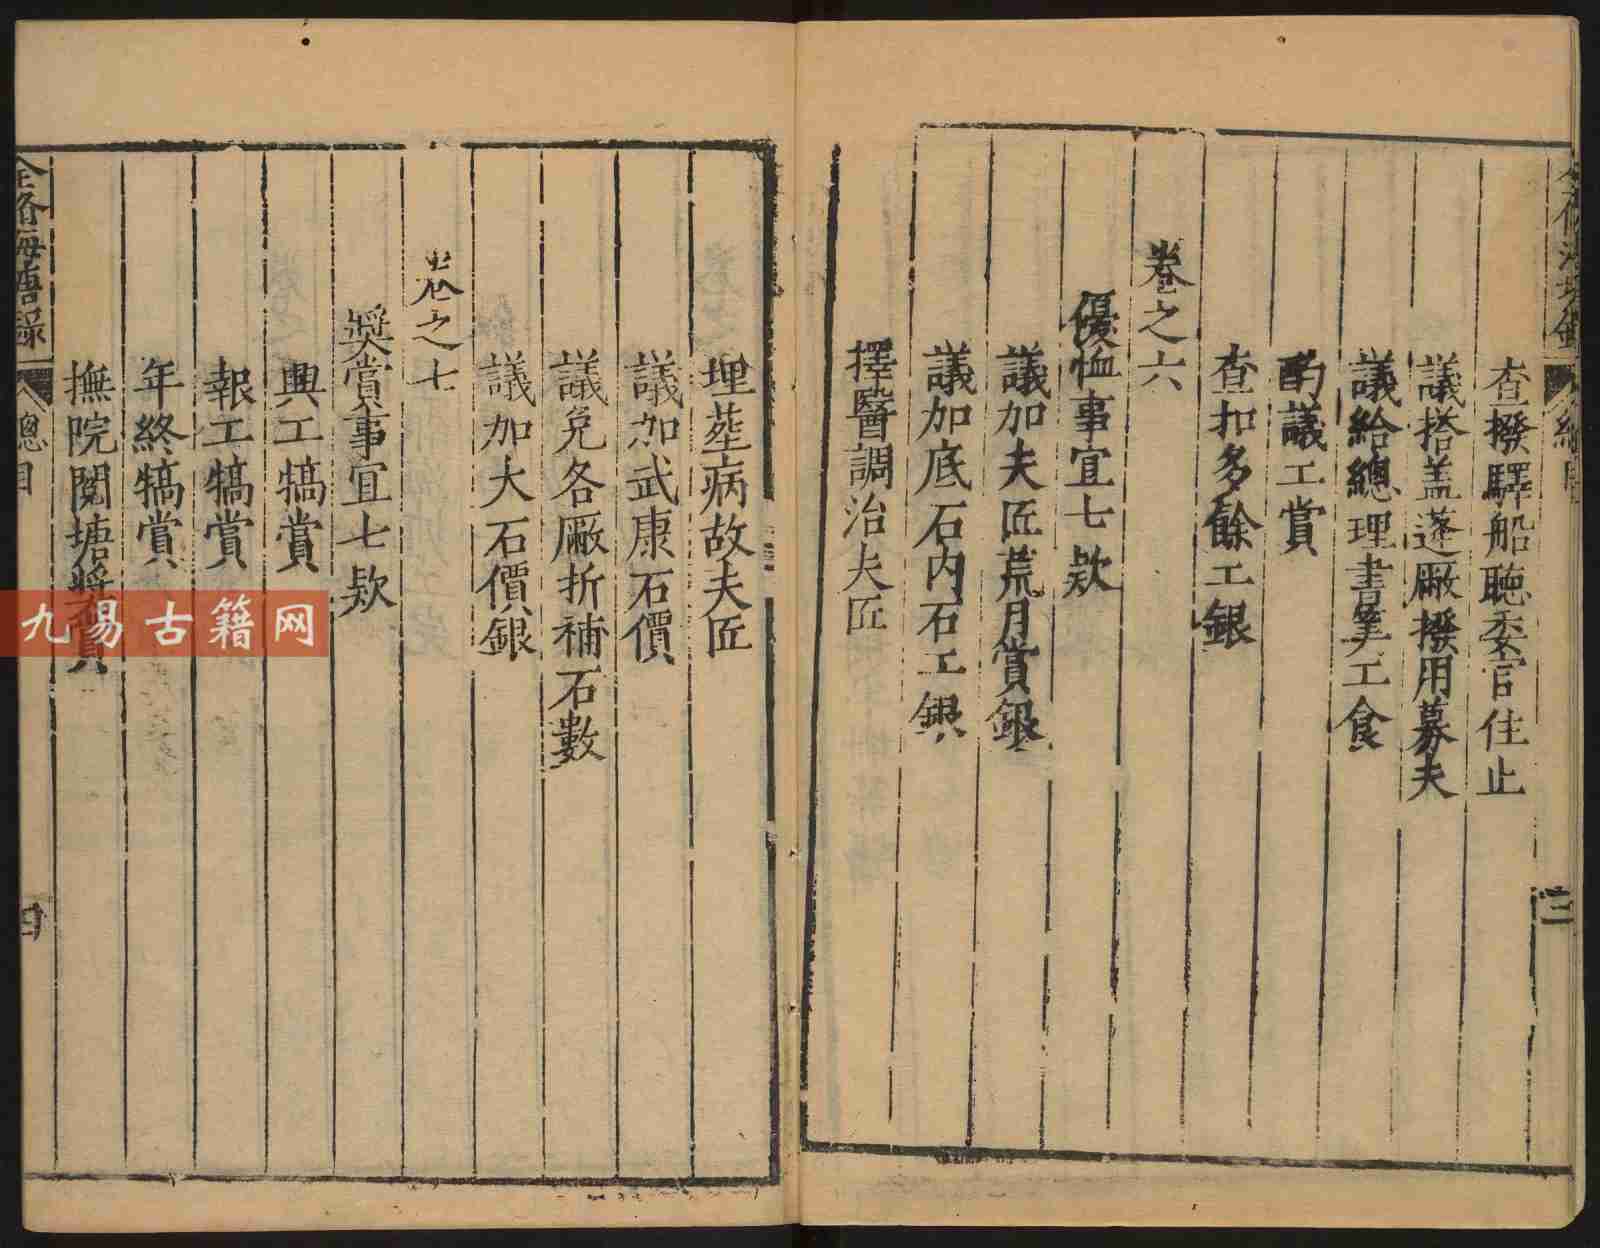 查撥驛船聽委官住止
議搭盖蓬厰撥用募夫
議給總理書筭工食
酌議工賞
查扣多餘工銀
卷之六
優恤事宜七欵
議加夫匠荒月賞銀
議加底石内石工銀
擇醫調治夫匠
三
埋葬病故夫匠
議加武康石價
議免各厰折補石數
議加大石價銀
卷之七
奬賞事宜七欵
興工犒賞
報工犒賞
年終犒賞
撫院閲塘奬賞
全修海塘録
總目
四
九易古籍网